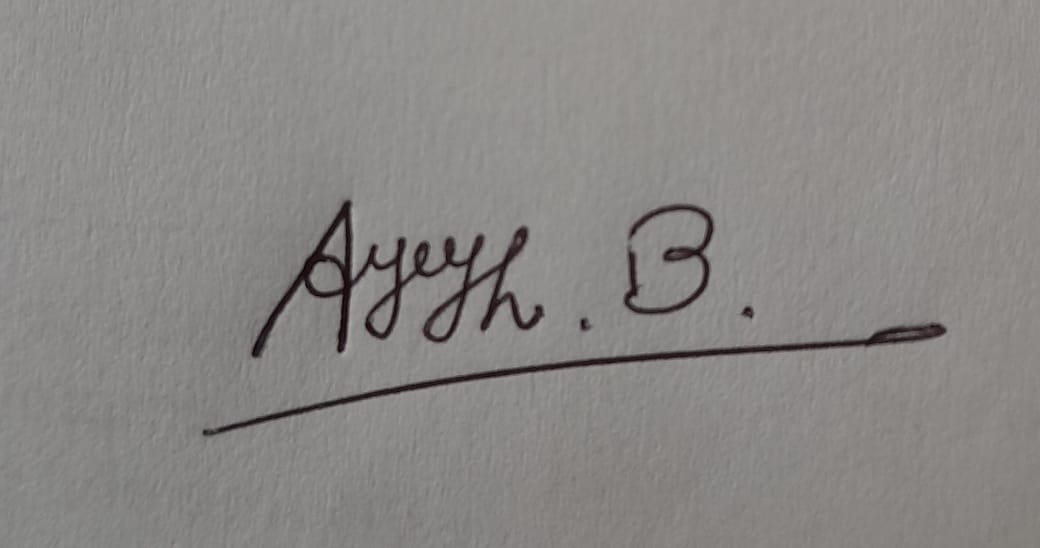 Ayeyh. B.